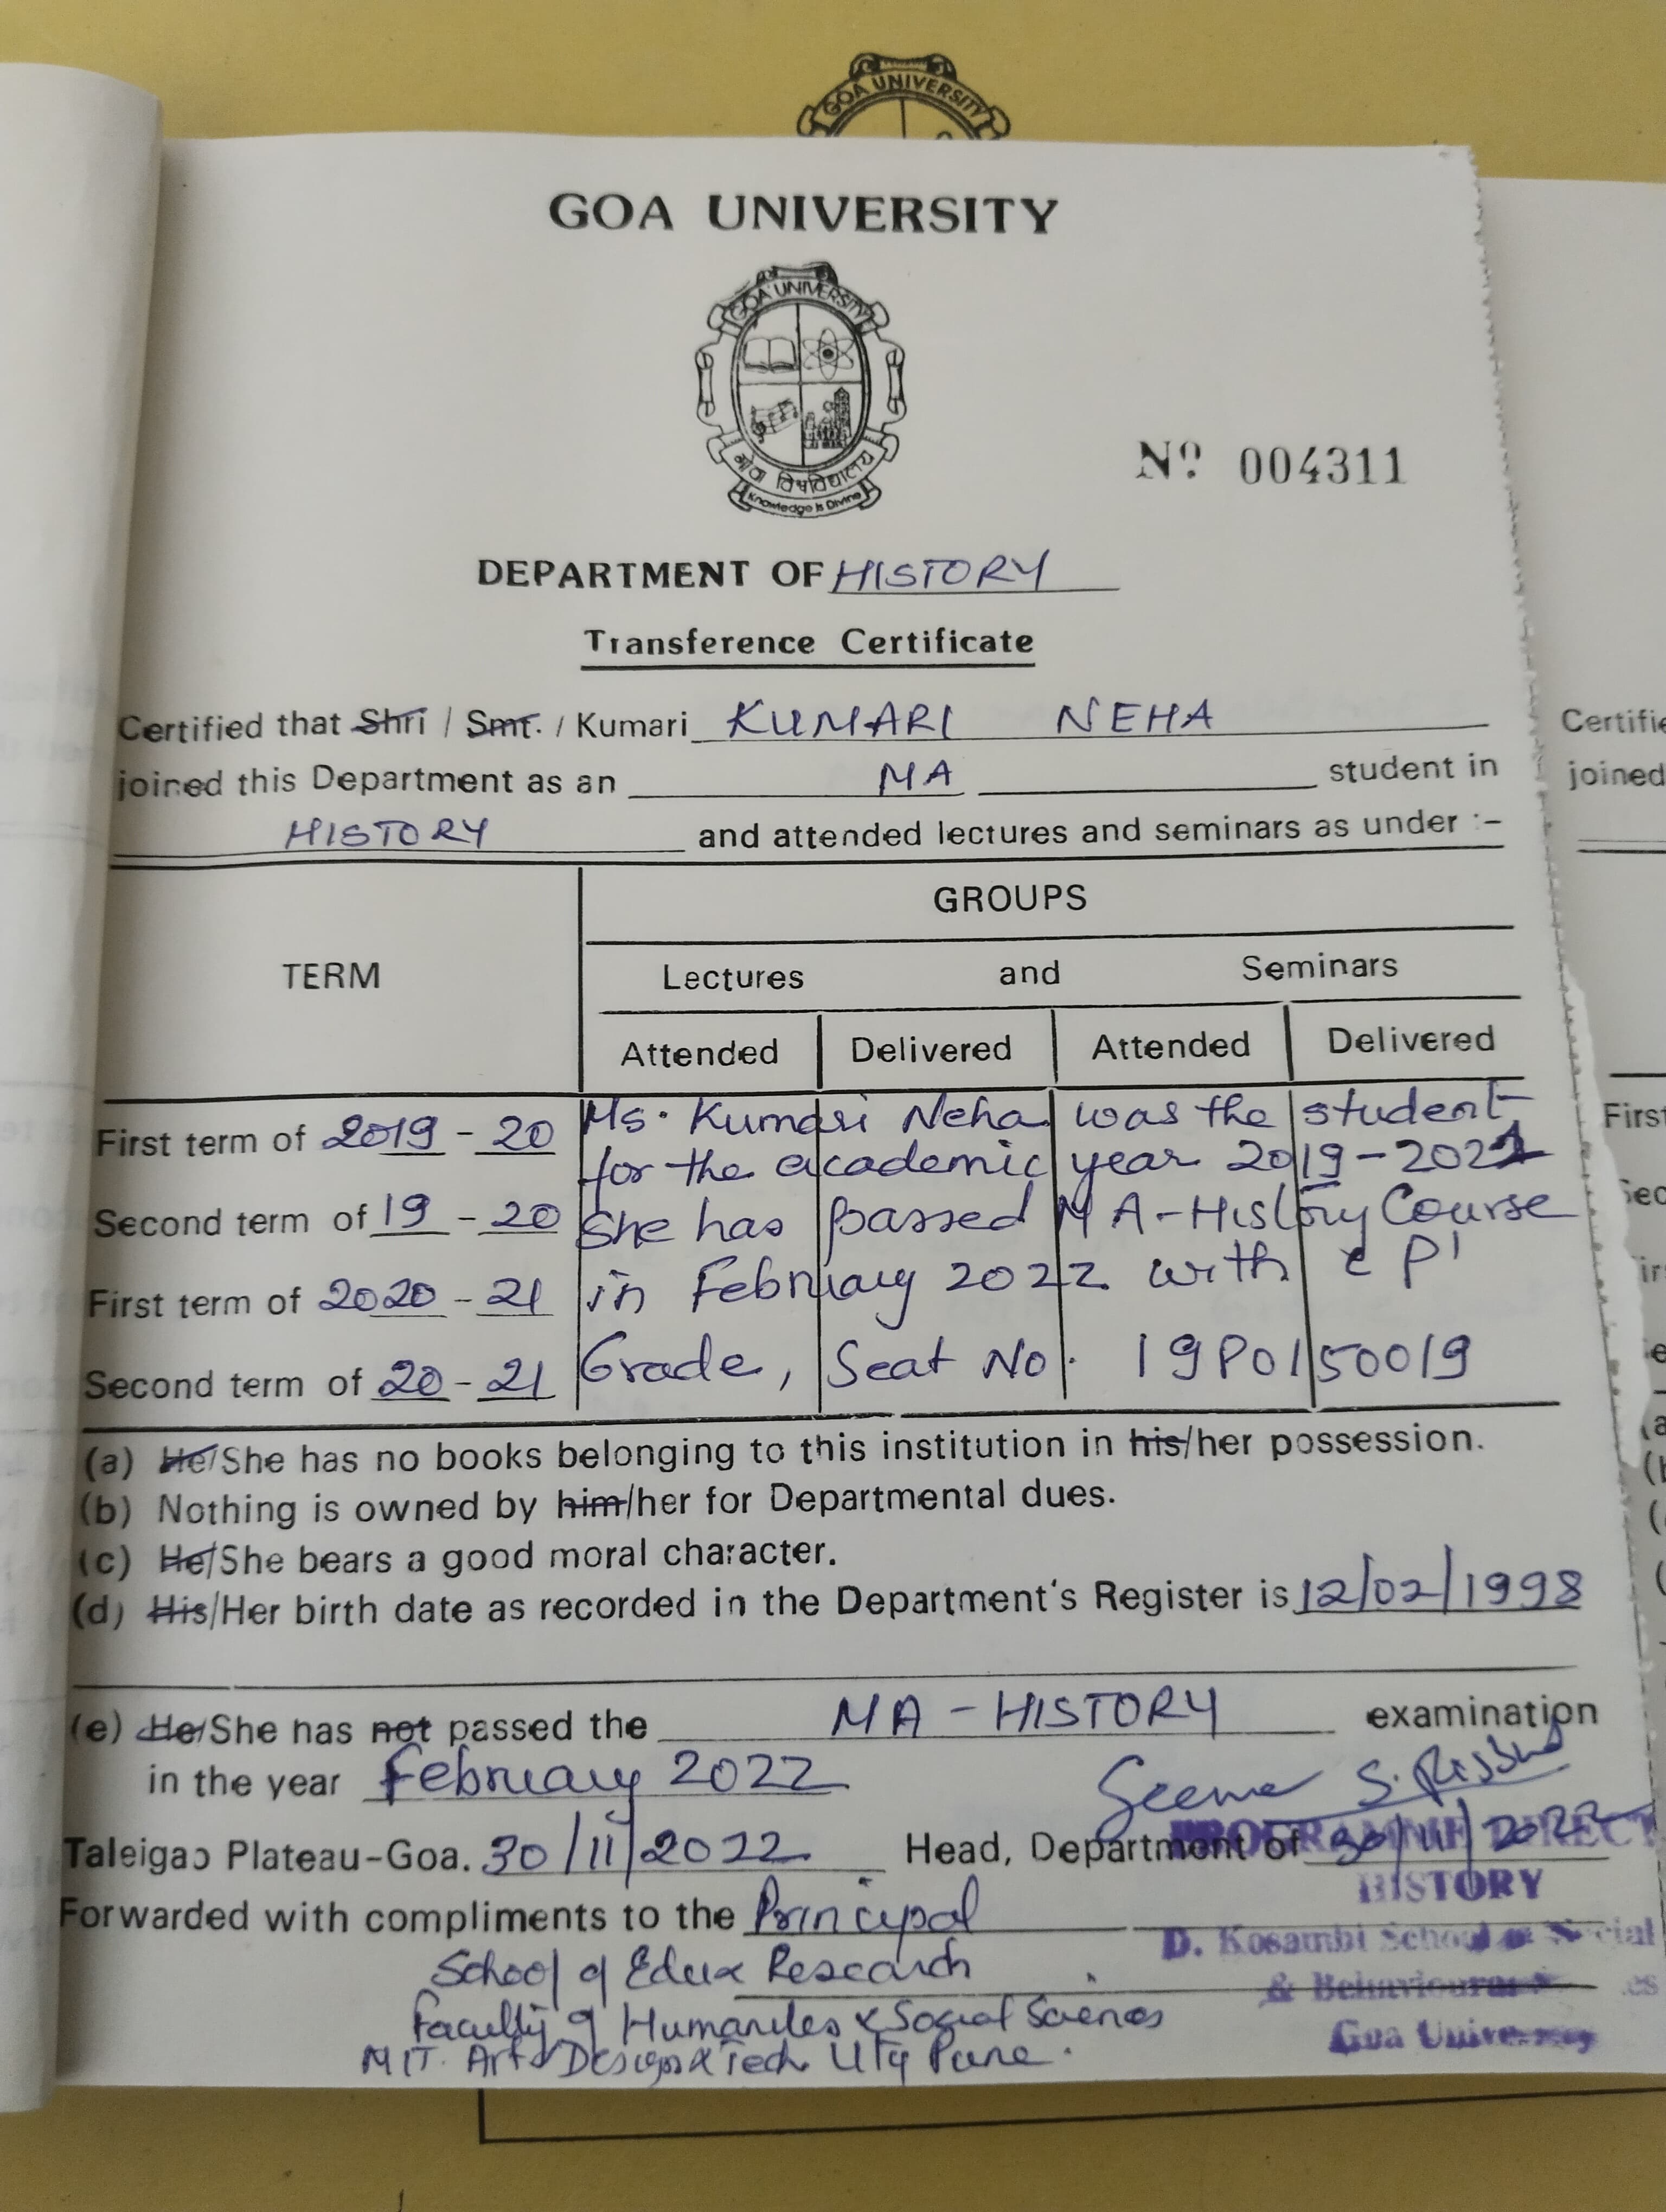 GOA UNIVERSITY
GOA UNIVERSITY
GOA UNIVERSITY
गोवा विश्वविद्यालय
Knowledge is Divine
Nº 004311
DEPARTMENT OF HISTORY
Transference Certificate
Certified that Shri / Smt. / Kumari KUMARI NEHA
joined this Department as an MA student in
HISTORY and attended lectures and seminars as under :-
GROUPS
TERM
Lectures and Seminars
Attended Delivered Attended Delivered
First term of 2019 - 20
Second term of 19 - 20
First term of 2020 - 21
Second term of 20 - 21
Ms. Kumari Neha was the student
for the academic year 2019-2021
She has passed MA-History Course
in February 2022 with 'P'
Grade, Seat No. 19P0150019
(a) He/She has no books belonging to this institution in his/her possession.
(b) Nothing is owned by him/her for Departmental dues.
(c) He/She bears a good moral character.
(d) His/Her birth date as recorded in the Department's Register is 12/02/1998
(e) He/She has not passed the MA - HISTORY examination
in the year February 2022
Seema S.
Taleigao Plateau-Goa. 30/11/2022 Head, Department of 30/11/2022
PROGRAMME DIRECT
HISTORY
Forwarded with compliments to the Principal
D. Kosambi School of Social
School of Edu & Research
& Behavioural
Faculty of Humanities & Social Sciences
Goa University
MIT. Art Design & Tech Uty Pune.
Certifie
joined
First